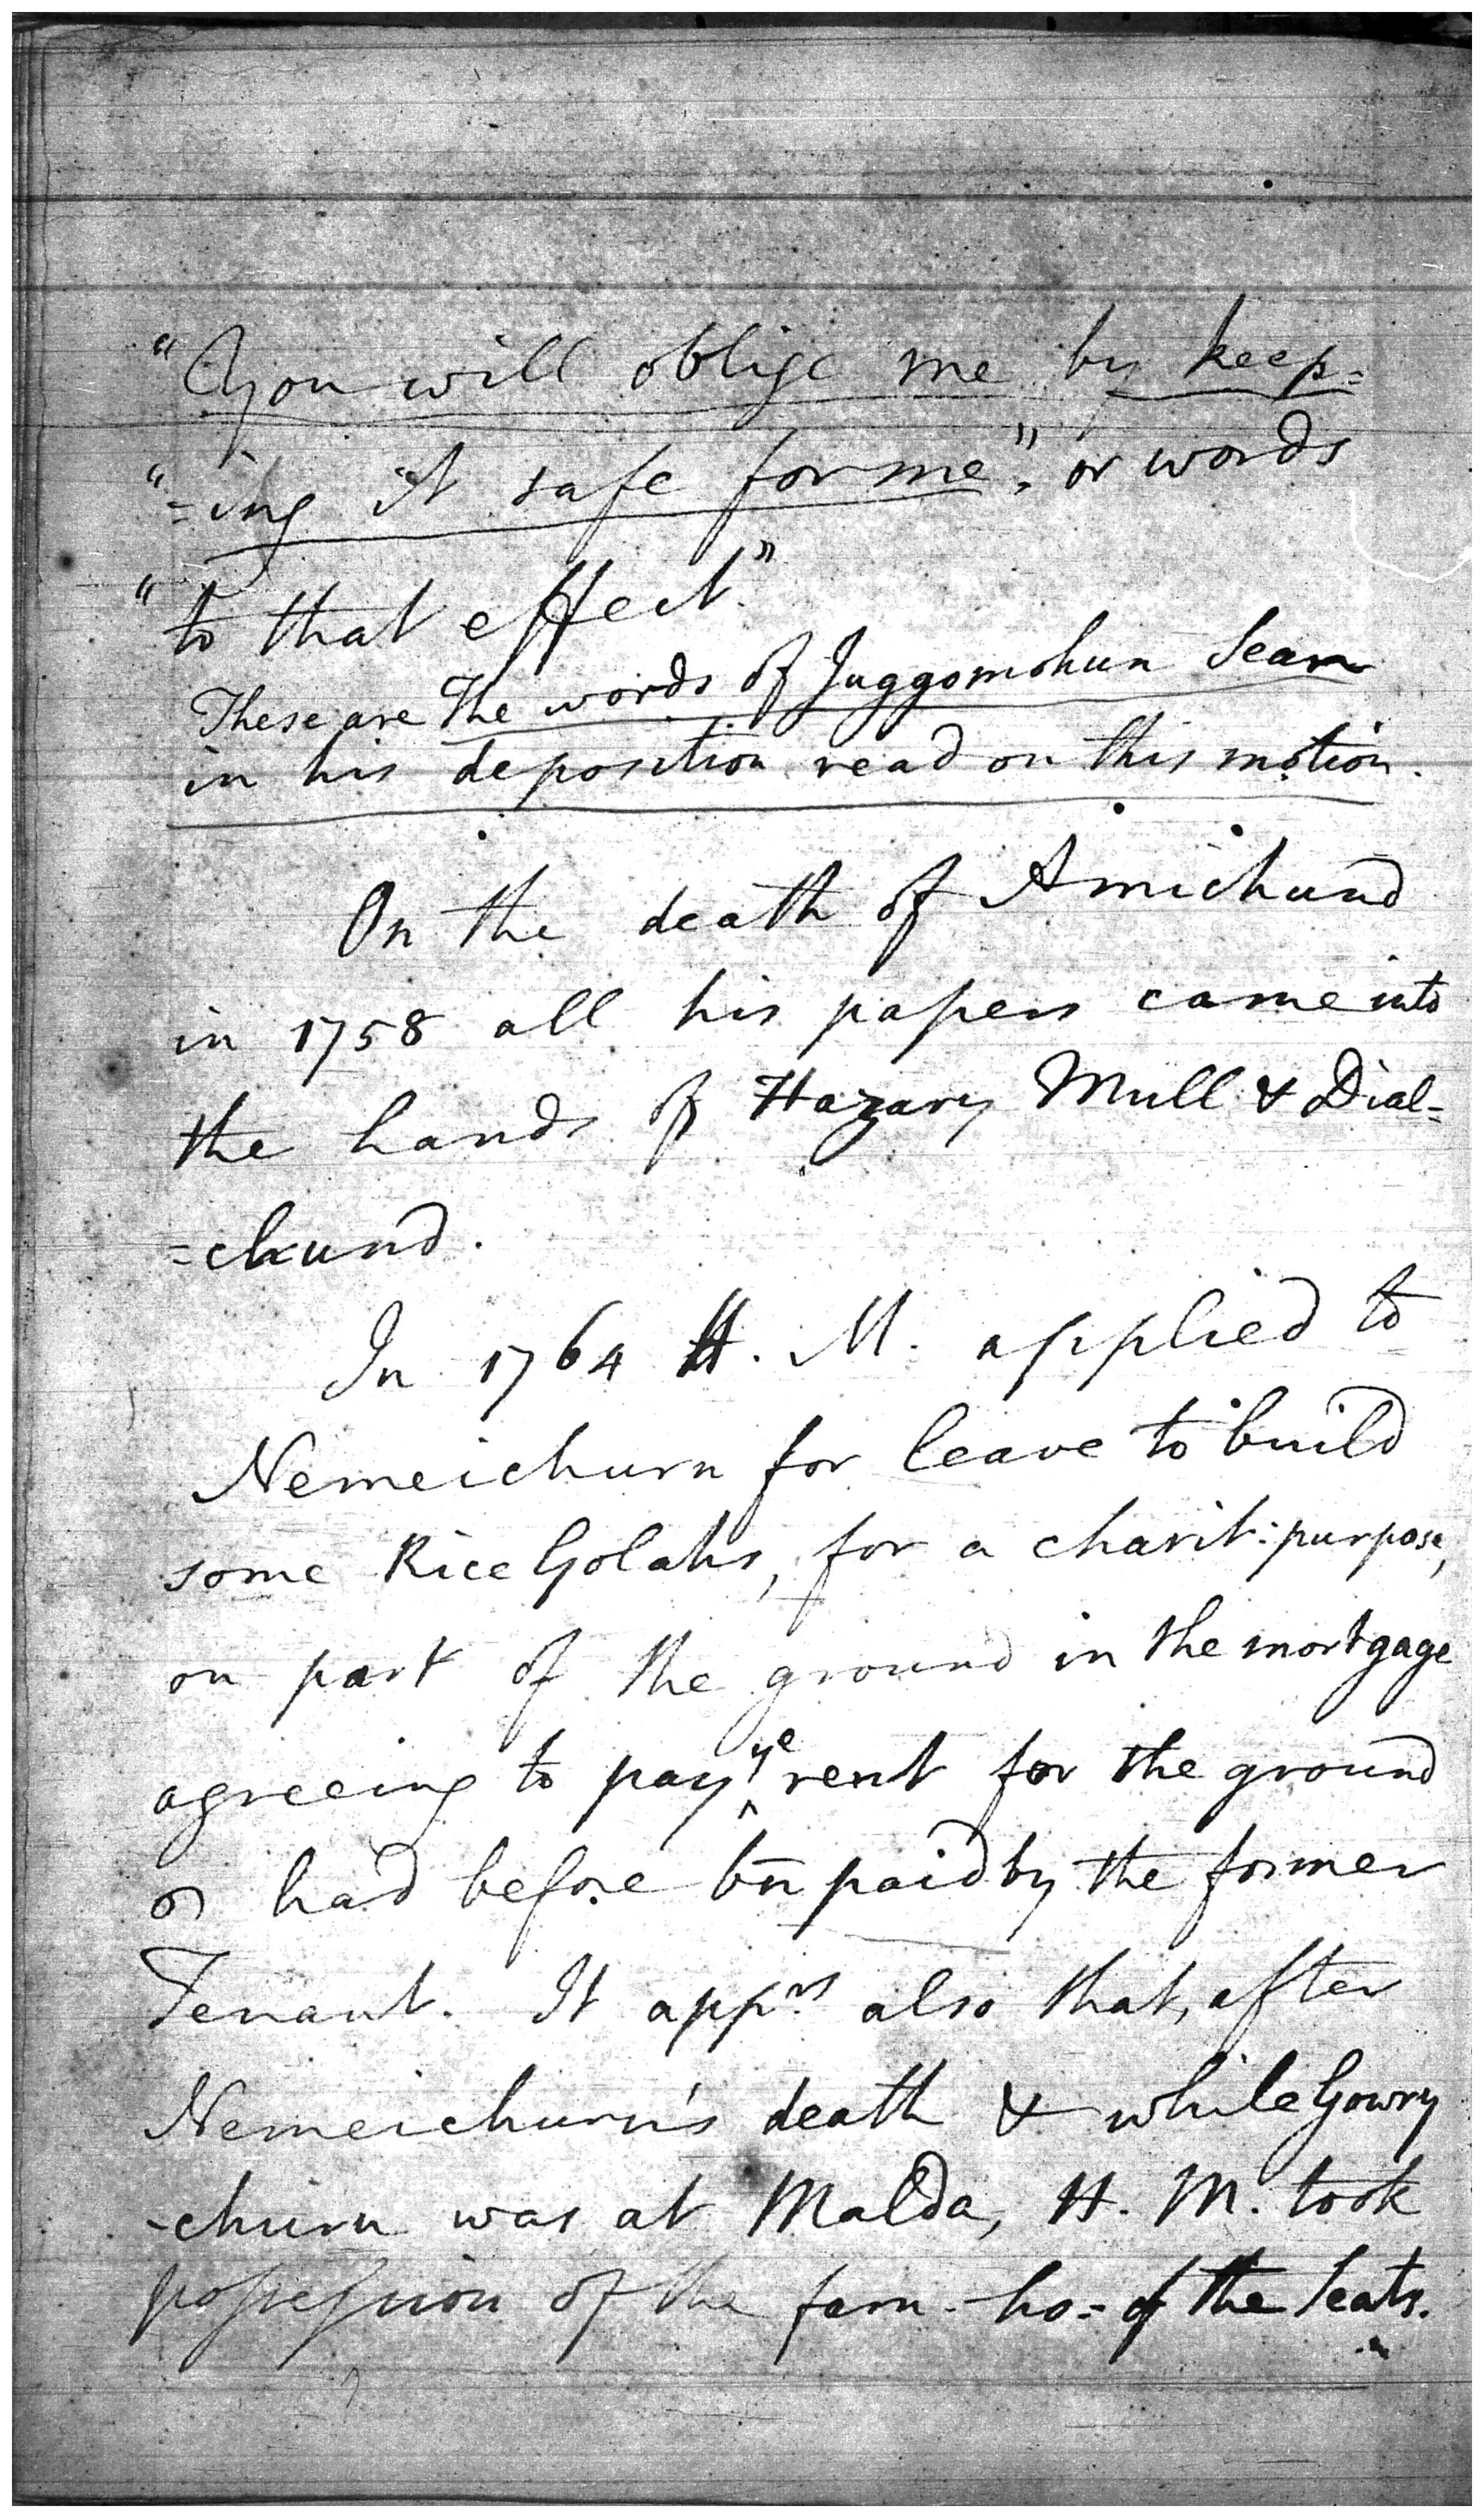 "You will oblige me by keep=
"=ing it safe for me", or words
"to that effect"
These are the words of Juggomohun Sean
in his deposition read on this motion.
On the death of Amichund
in 1758 all his papers came into
the hands of Hazary Mull & Dial=
=chund.
In 1764 H. M. applied to
Nemeichurn for leave to build
some Rice Golahs, for a charit: purpose,
on part of the ground in the mortgage
agreeing to pay ye rent for the ground
had before bn paid by the former
Tenant. It apprs also that, after
Nemeichurn's death & while Gowry
-churn was at Malda, H. M. took
possession of the fam- ho= of the Seats.